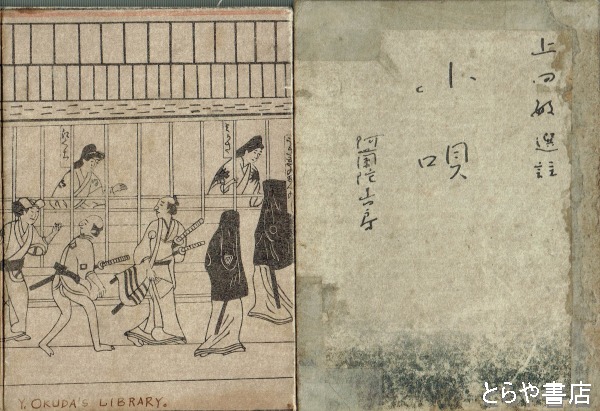 上田敏選註
小唄
阿蘭陀書房
Y. OKUDA'S LIBRARY.
とらや書店